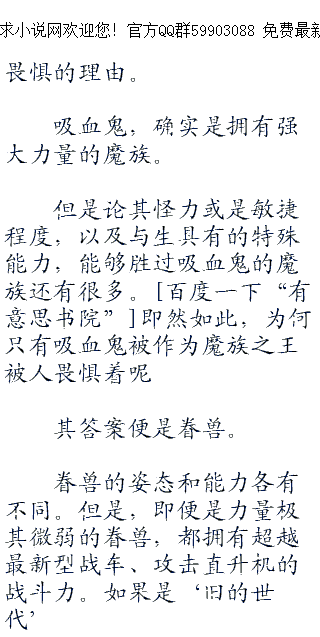 求小说网欢迎您！官方QQ群59903088 免费最新
畏惧的理由。
吸血鬼，确实是拥有强
大力量的魔族。
但是论其怪力或是敏捷
程度，以及与生具有的特殊
能力，能够胜过吸血鬼的魔
族还有很多。[百度一下“有
意思书院”]即然如此，为何
只有吸血鬼被作为魔族之王
被人畏惧着呢
其答案便是眷兽。
眷兽的姿态和能力各有
不同。但是，即便是力量极
其微弱的眷兽，都拥有超越
最新型战车、攻击直升机的
战斗力。如果是‘旧的世
代’